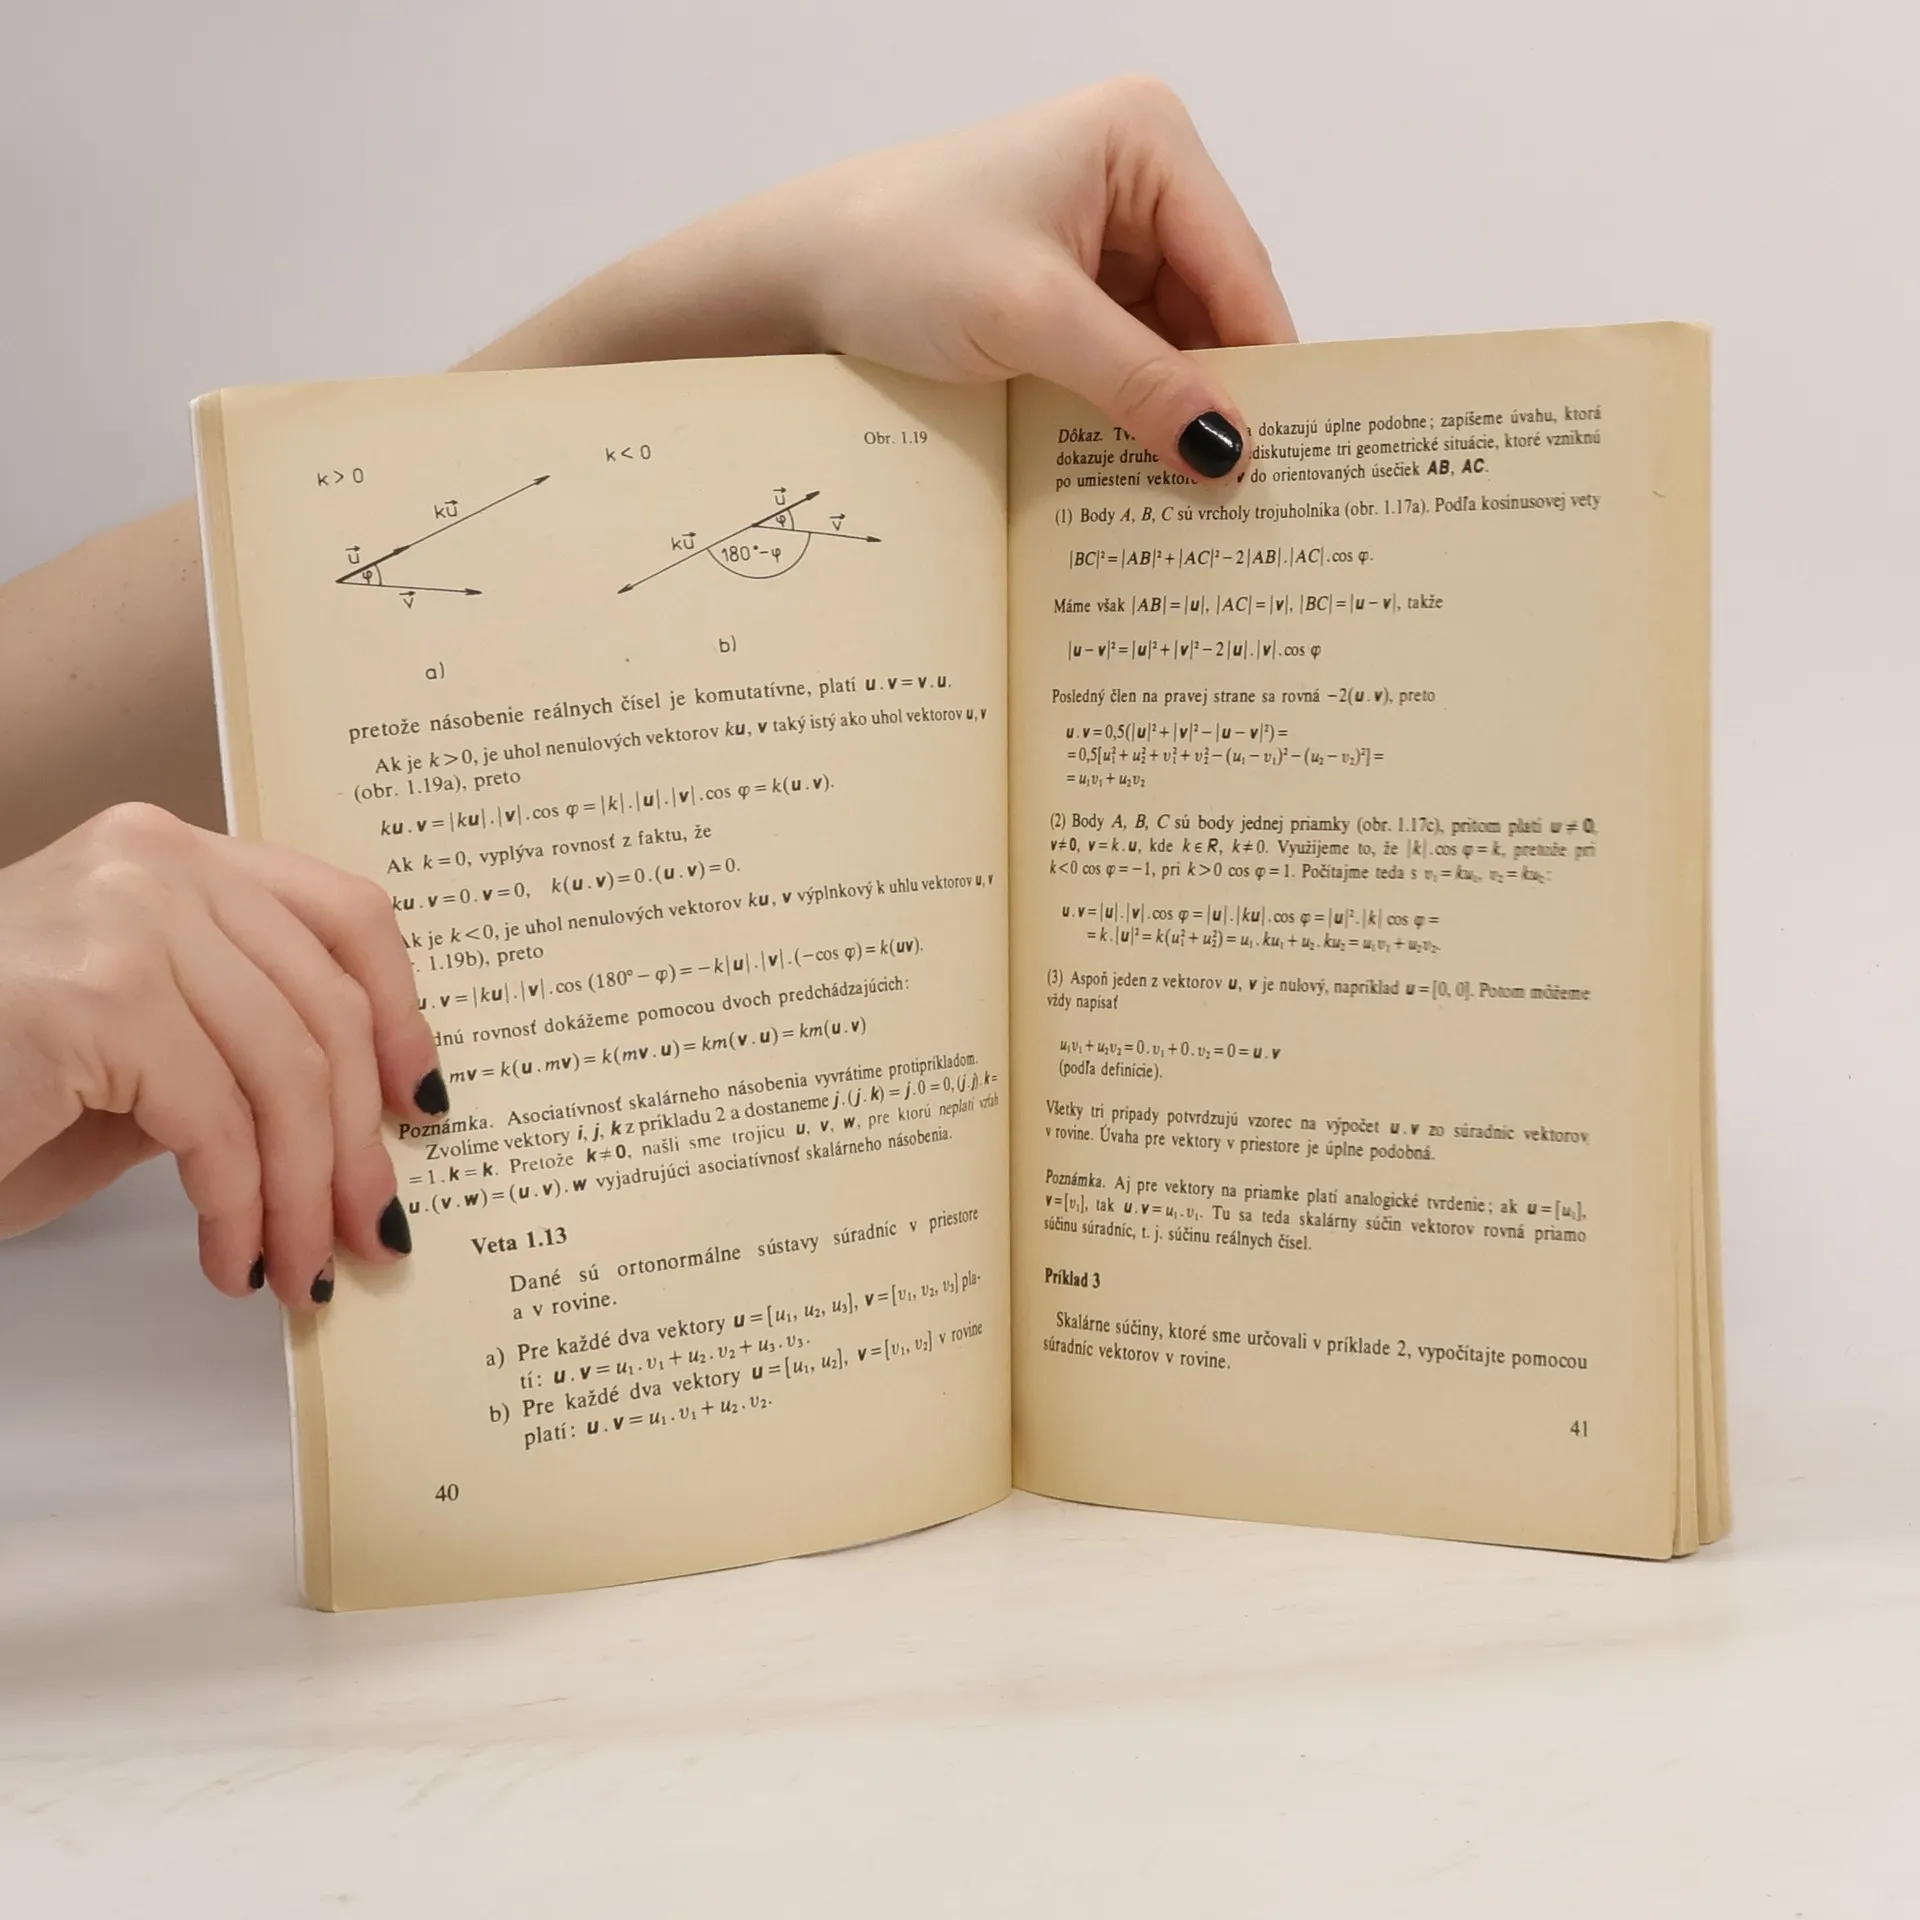 Obr. 1.19
k > 0
k < 0
ku⃗
u⃗
φ
v⃗
u⃗
φ
v⃗
ku⃗
180°-φ
a)
b)
pretože násobenie reálnych čísel je komutatívne, platí u.v=v.u.
Ak je k>0, je uhol nenulových vektorov ku, v taký istý ako uhol vektorov u, v
(obr. 1.19a), preto
ku.v=|ku|.|v|.cos φ=|k|.|u|.|v|.cos φ=k(u.v).
Ak k=0, vyplýva rovnosť z faktu, že
ku.v=0.v=0, k(u.v)=0.(u.v)=0.
k je k<0, je uhol nenulových vektorov ku, v výplnkový k uhlu vektorov u, v
. 1.19b), preto
u.v=|ku|.|v|.cos (180°-φ)=-k|u|.|v|.(-cos φ)=k(uv).
dnú rovnosť dokážeme pomocou dvoch predchádzajúcich:
mv=k(u.mv)=k(mv.u)=km(v.u)=km(u.v)
Poznámka. Asociatívnosť skalárneho násobenia vyvrátime protipríkladom.
Zvolíme vektory i, j, k z príkladu 2 a dostaneme j.(j.k)=j.0=0, (j.j).k=
=1.k=k. Pretože k≠0, našli sme trojicu u, v, w, pre ktorú neplatí vzťah
u.(v.w)=(u.v).w vyjadrujúci asociatívnosť skalárneho násobenia.
Veta 1.13
Dané sú ortonormálne sústavy súradníc v priestore
a v rovine.
a) Pre každé dva vektory u=[u₁, u₂, u₃], v=[v₁, v₂, v₃] pla-
tí: u.v=u₁.v₁+u₂.v₂+u₃.v₃.
b) Pre každé dva vektory u=[u₁, u₂], v=[v₁, v₂] v rovine
platí: u.v=u₁.v₁+u₂.v₂.
40
Dôkaz. dokazujú úplne podobne; zapíšeme úvahu, ktorá
dokazuje diskutujeme tri geometrické situácie, ktoré vzniknú
po umiestení v do orientovaných úsečiek AB, AC.
(1) Body A, B, C sú vrcholy trojuholníka (obr. 1.17a). Podľa kosinusovej vety
|BC|²=|AB|²+|AC|²-2|AB|.|AC|.cos φ.
Máme však |AB|=|u|, |AC|=|v|, |BC|=|u-v|, takže
|u-v|²=|u|²+|v|²-2|u|.|v|.cos φ
Posledný člen na pravej strane sa rovná -2(u.v), preto
u.v=0,5(|u|²+|v|²-|u-v|²)=
=0,5[u₁²+u₂²+v₁²+v₂²-(u₁-v₁)²-(u₂-v₂)²]=
=u₁v₁+u₂v₂
(2) Body A, B, C sú body jednej priamky (obr. 1.17c), pritom platí u≠0,
v≠0, v=k.u, kde k∈R, k≠0. Využijeme to, že |k|.cos φ=k, pretože pri
k<0 cos φ=-1, pri k>0 cos φ=1. Počítajme teda s v₁=ku₁, v₂=ku₂:
u.v=|u|.|v|.cos φ=|u|.|ku|.cos φ=|u|².|k| cos φ=
=k.|u|²=k(u₁²+u₂²)=u₁.ku₁+u₂.ku₂=u₁v₁+u₂v₂.
(3) Aspoň jeden z vektorov u, v je nulový, napríklad u=[0, 0]. Potom môžeme
vždy napísať
u₁v₁+u₂v₂=0.v₁+0.v₂=0=u.v
(podľa definície).
Všetky tri prípady potvrdzujú vzorec na výpočet u.v zo súradníc vektorov
v rovine. Úvaha pre vektory v priestore je úplne podobná.
Poznámka. Aj pre vektory na priamke platí analogické tvrdenie; ak u=[u₁],
v=[v₁], tak u.v=u₁.v₁. Tu sa teda skalárny súčin vektorov rovná priamo
súčinu súradníc, t. j. súčinu reálnych čísel.
Príklad 3
Skalárne súčiny, ktoré sme určovali v príklade 2, vypočítajte pomocou
súradníc vektorov v rovine.
41